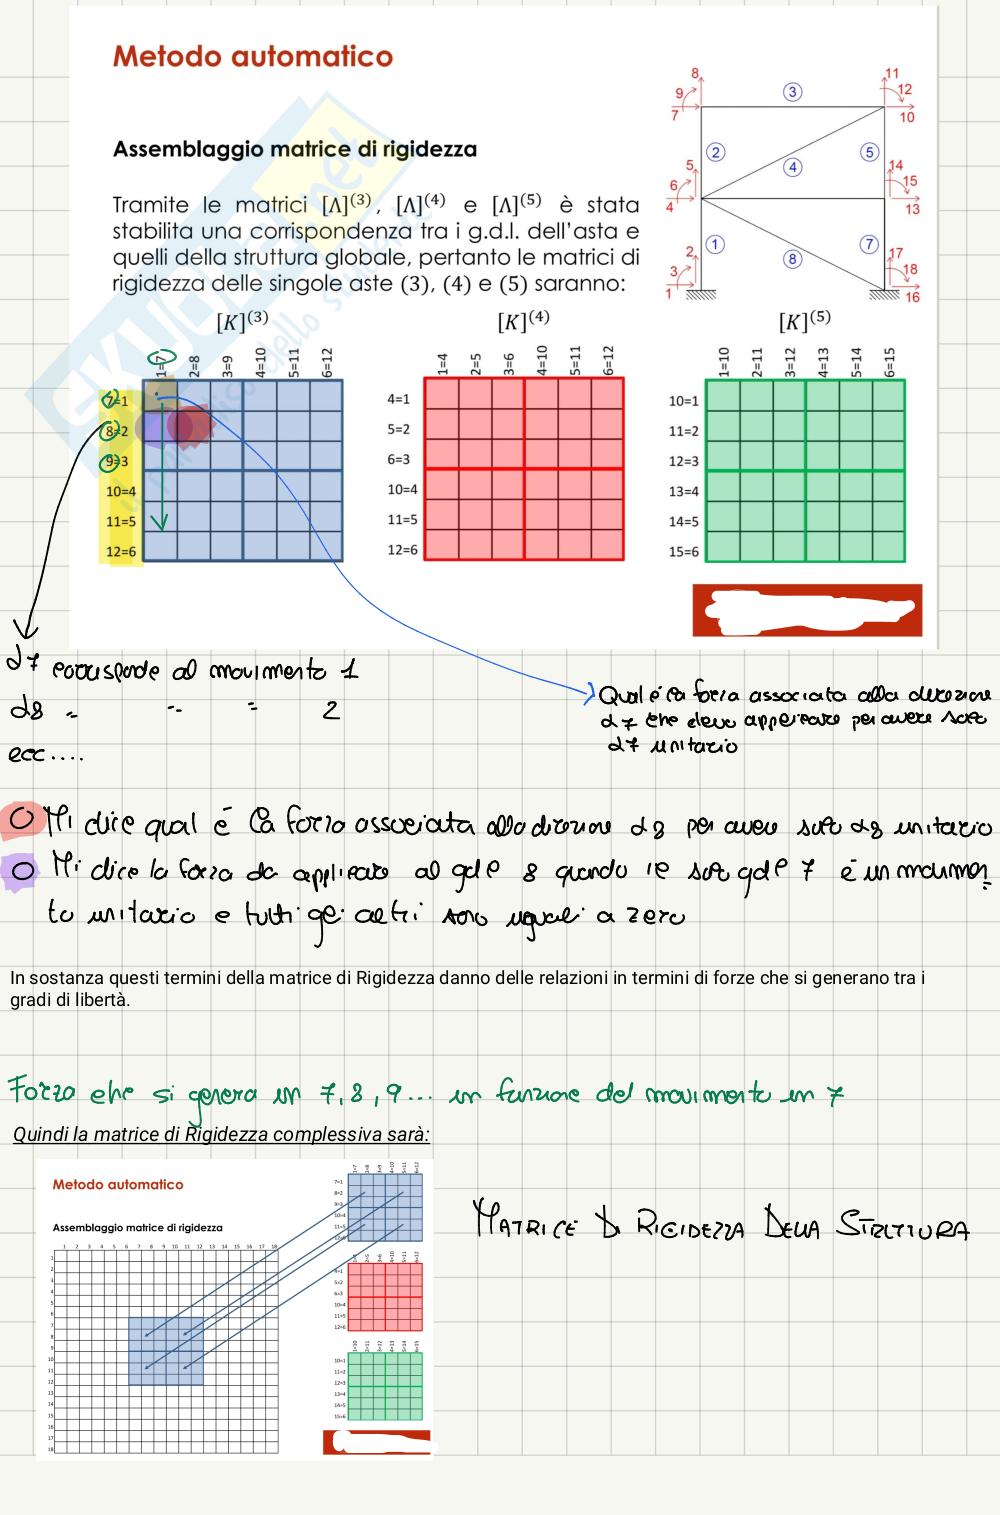 Metodo automatico
Assemblaggio matrice di rigidezza
Tramite le matrici [Λ]⁽³⁾, [Λ]⁽⁴⁾ e [Λ]⁽⁵⁾ è stata
stabilita una corrispondenza tra i g.d.l. dell'asta e
quelli della struttura globale, pertanto le matrici di
rigidezza delle singole aste (3), (4) e (5) saranno:
8 11
9 3 12
7 10
2 4 5
5 14
6 15
4 13
1 8 7
2 17
3 18
1 16
[K]⁽³⁾ [K]⁽⁴⁾ [K]⁽⁵⁾
1=7 2=8 3=9 4=10 5=11 6=12
7=1
8=2
9=3
10=4
11=5
12=6
1=4 2=5 3=6 4=10 5=11 6=12
4=1
5=2
6=3
10=4
11=5
12=6
1=10 2=11 3=12 4=13 5=14 6=15
10=1
11=2
12=3
13=4
14=5
15=6
SKUOLA.net
d7 corrisponde al movimento 1
d8 " " " 2
ecc....
Qual è la forza associata alla direzione
d7 che devo applicare per avere solo
d7 unitario
Mi dice qual è la forza associata alla direzione d8 per avere solo d8 unitario
Mi dice la forza da applicare al gdl 8 quando il sol gdl 7 è un movimen
to unitario e tutti gli altri sono uguali a zero
In sostanza questi termini della matrice di Rigidezza danno delle relazioni in termini di forze che si generano tra i
gradi di libertà.
Forza che si genera in 7, 8, 9... in funzione del movimento in 7
Quindi la matrice di Rigidezza complessiva sarà:
Metodo automatico
Assemblaggio matrice di rigidezza
1 2 3 4 5 6 7 8 9 10 11 12 13 14 15 16 17 18
1
2
3
4
5
6
7
8
9
10
11
12
13
14
15
16
17
18
1=7 2=8 3=9 4=10 5=11 6=12
7=1
8=2
9=3
10=4
11=5
12=6
4=1
5=2
6=3
10=4
11=5
12=6
1=10 2=11 3=12 4=13 5=14 6=15
10=1
11=2
12=3
13=4
14=5
15=6
MATRICE DI RIGIDEZZA DELLA STRUTTURA